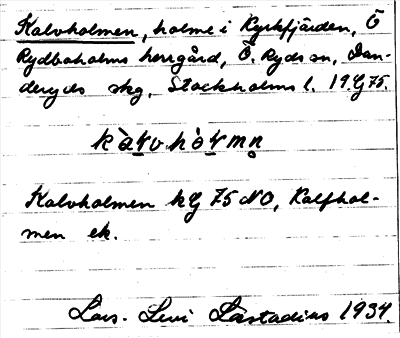 Kalvholmen, holme i Kyrkfjärden, Ö
Rydboholms herrgård, Ö. Ryds sn, Dan-
deryds skg, Stockholms l. 19.G 75.
kàlvhòlmn̥
Kalvholmen kG 75 NO, Kalfhol-
men ek.
Lars-Levi Læstadius 1934.